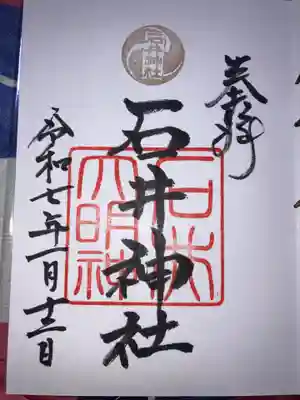 奉拝
石井神社
石井神社
石井大明神
令和七年一月十三日